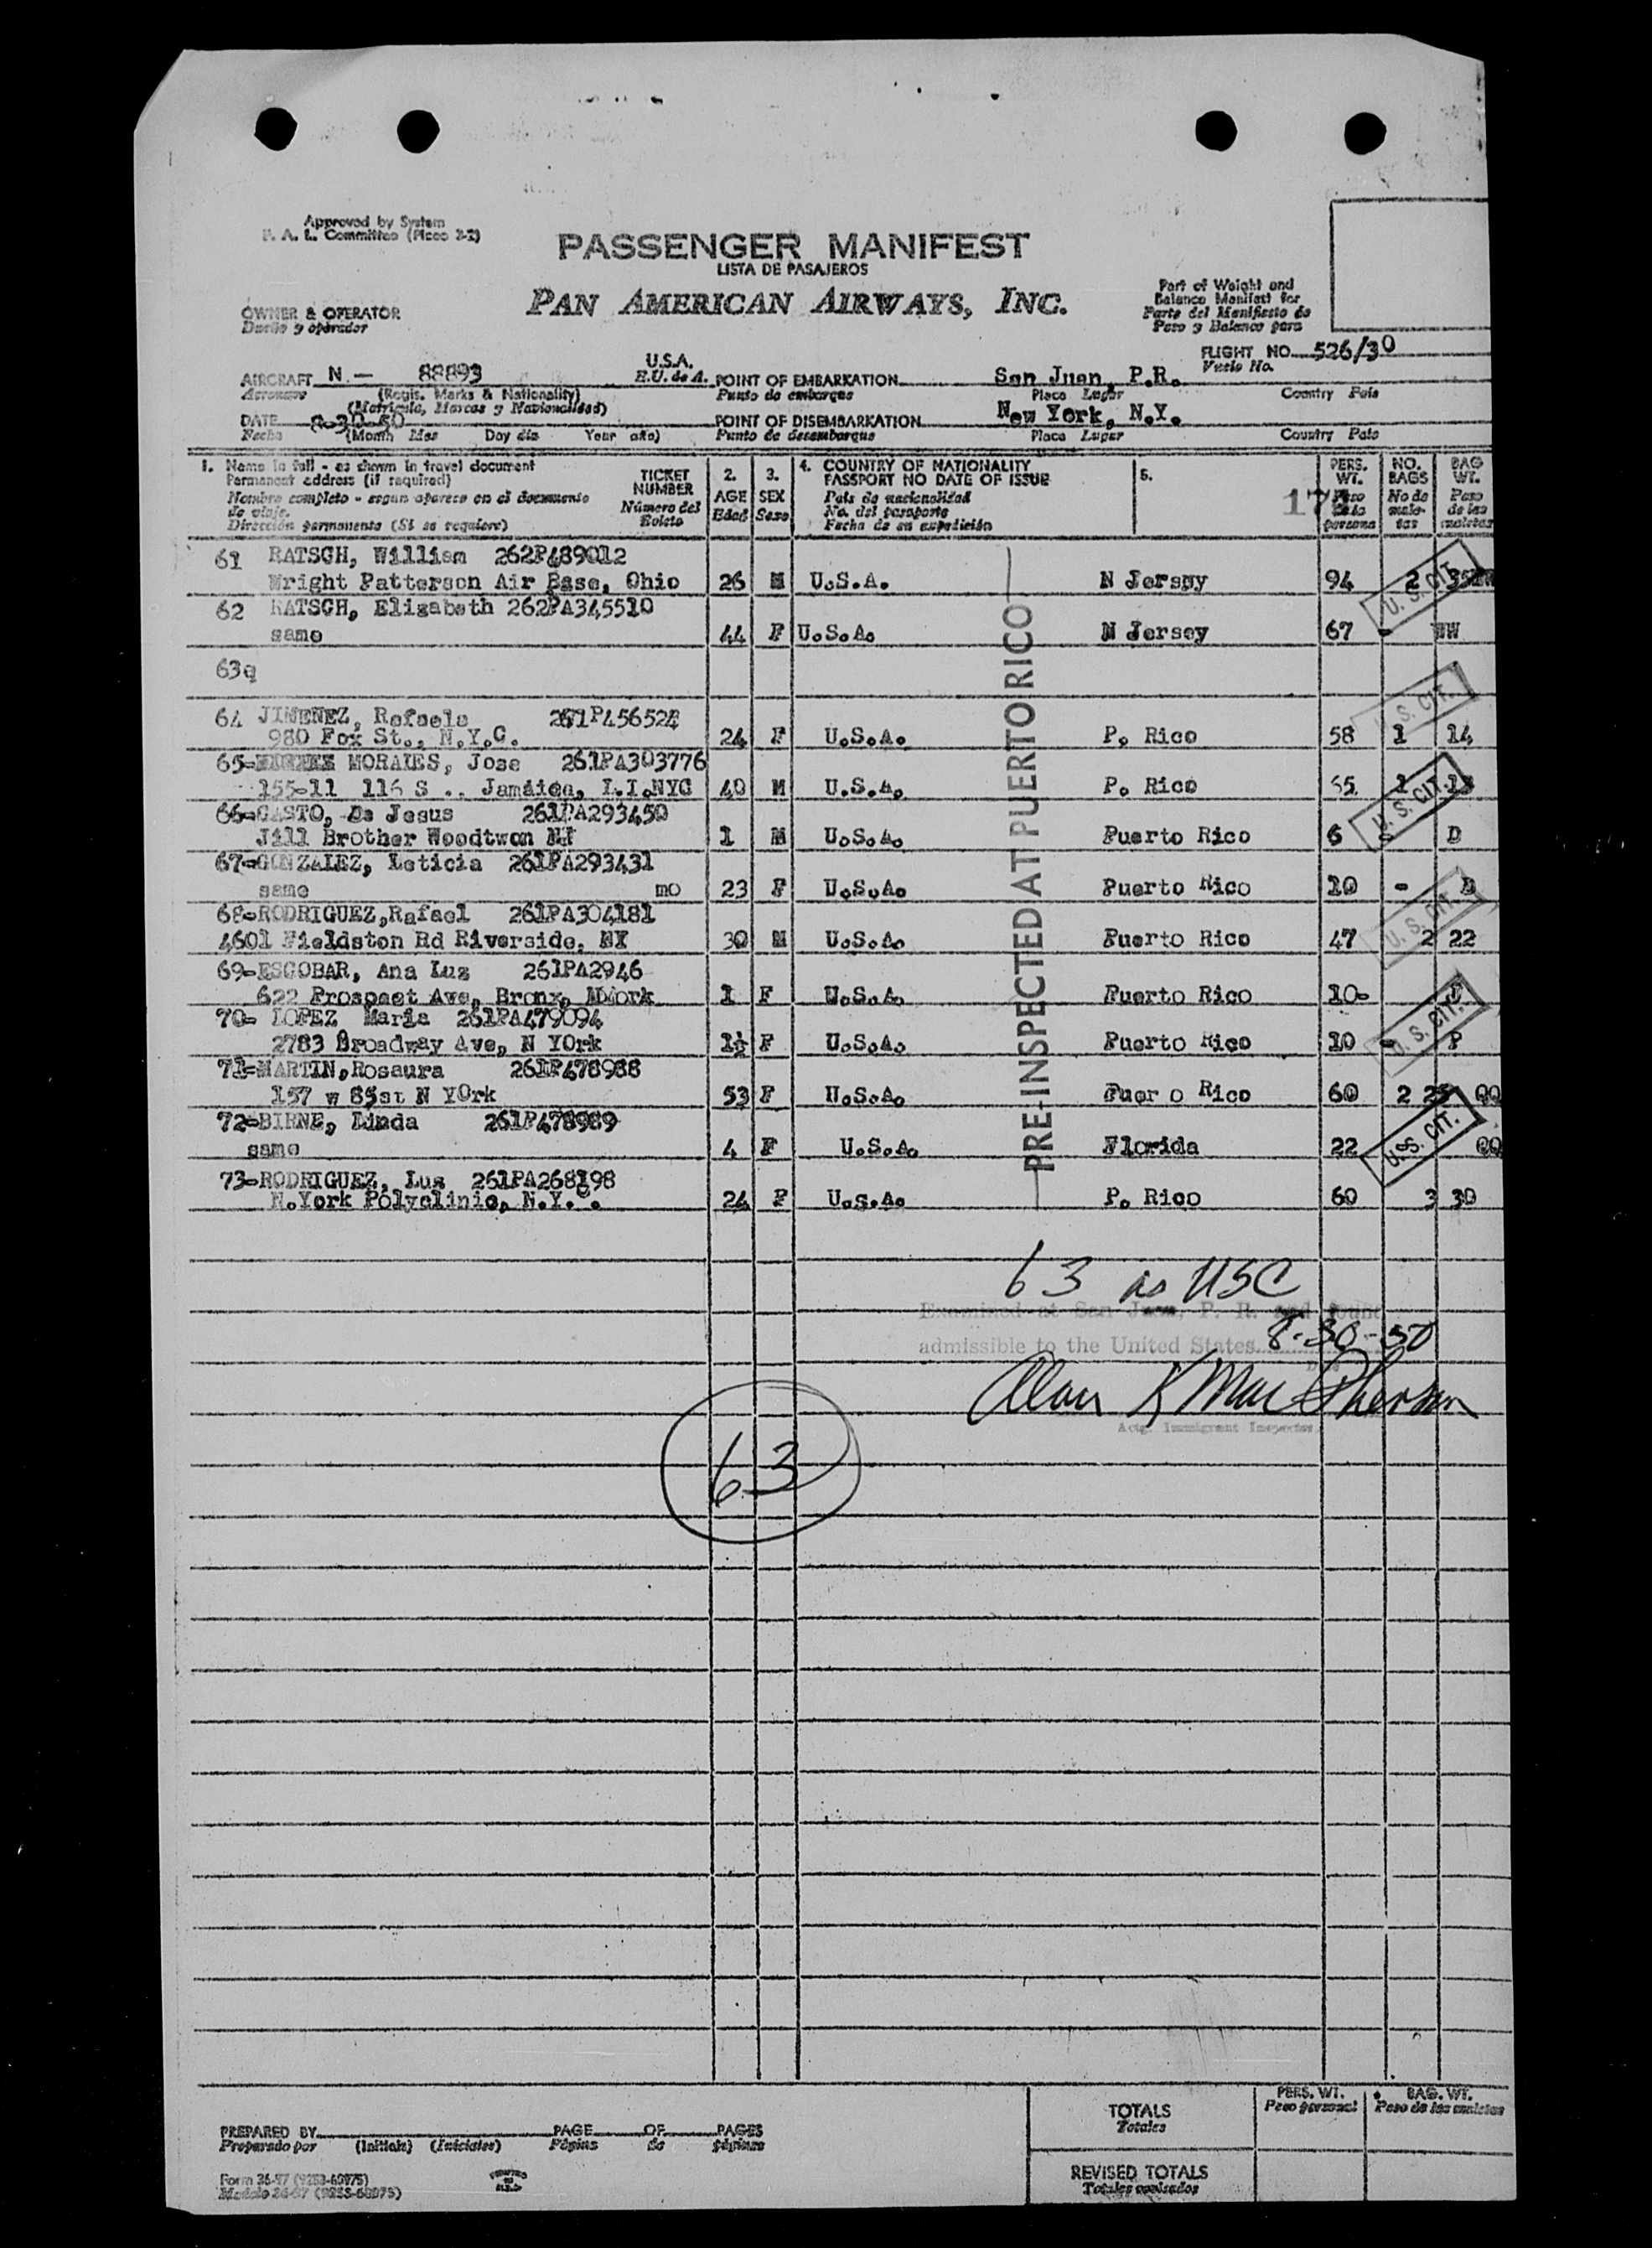 Approved by System
F. A. L. Committee (Picao 3-2)
PASSENGER MANIFEST
LISTA DE PASAJEROS
PAN AMERICAN AIRWAYS, INC.
Part of Weight and
Balance Manifest for
Parte del Manifiesto de
Peso y Balance para
OWNER & OPERATOR
Dueño y operador
FLIGHT NO. 526/30
Vuelo No.
AIRCRAFT N — 88893 U.S.A.
Aeronave (Regis. Marks & Nationality) E.U. de A.
(Matricula, Marcas y Nacionalidad)
POINT OF EMBARKATION San Juan, P.R.
Punto de embarque Place Lugar Country Pais
DATE 8-30-50
Fecha (Month Mes Day dia Year año)
POINT OF DISEMBARKATION New York, N.Y.
Punto de desembarque Place Lugar Country Pais
1. Name in full - as shown in travel document
Permanent address (if required)
Nombre completo - segun aparece en el documento
de viaje.
Dirección permanente (Si se requiere)
TICKET
NUMBER
Número del
Boleto
2.
AGE
Edad
3.
SEX
Sexo
4. COUNTRY OF NATIONALITY
PASSPORT NO DATE OF ISSUE
Pais de nacionalidad
No. del pasaporte
Fecha de su expedición
5.
17
PERS.
WT.
Peso
de la
persona
NO.
BAGS
No de
male-
tas
BAG
WT.
Peso
de las
maletas
61 RATSCH, William 262P489012
Wright Patterson Air Base, Ohio 26 M U.S.A. N Jersey 94 2
62 RATSCH, Elizabeth 262PA345510
same 44 F U.S.A. N Jersey 67 - WW
63q
64 JIMENEZ, Rafaela 261P456524
980 Fox St., N.Y.C. 24 F U.S.A. P. Rico 58 1 14
65- MORALES, Jose 261PA303776
155-11 116 S .. Jamaica, L.I.NYC 40 M U.S.A. P. Rico 65 1 13
66-CASTO, De Jesus 261PA293450
Jill Brother Woodtwon NJ 1 M U.S.A. Puerto Rico 6 D
67-GONZALEZ, Leticia 261PA293431
same mo 23 F U.S.A. Puerto Rico 10 - D
68-RODRIGUEZ,Rafael 261PA304181
4601 Fieldston Rd Riverside, NY 30 M U.S.A. Puerto Rico 47 2 22
69-ESCOBAR, Ana Luz 261PA2946
622 Prospect Ave, Bronx, NYork 1 F U.S.A. Puerto Rico 10-
70- LOPEZ Maria 261PA479094
2783 Broadway Ave, N YOrk 1½ F U.S.A. Puerto Rico 10 - P
71-MARTIN,Rosaura 261P478988
157 w 85st N YOrk 53 F U.S.A. Puer o Rico 60 2 25 QQ
72-BIRNE, Linda 261P478989
same 4 F U.S.A. Florida 22 QQ
73-RODRIGUEZ, Luz 261PA268198
N.York Polyclinic, N.Y. . 24 F U.S.A. P. Rico 60 3 30
PRE-INSPECTED AT PUERTO RICO
U. S. CIT.
U. S. CIT.
U. S. CIT.
U. S. CIT.
U. S. CIT.
U. S. CIT.
63 as USC
Examined at San Juan, P. R. and found
admissible to the United States 8-30-50
Date
Alan K MacPherson
Actg. Immigrant Inspector
63
PREPARED BY PAGE OF PAGES
Preparado por (Initials) (Iniciales) Página de páginas
TOTALS
Totales
PERS. WT.
Peso personal
BAG. WT.
Peso de las maletas
REVISED TOTALS
Totales revisados
Form 36-97 (9253-60975)
Modelo 36-97 (9253-60975)